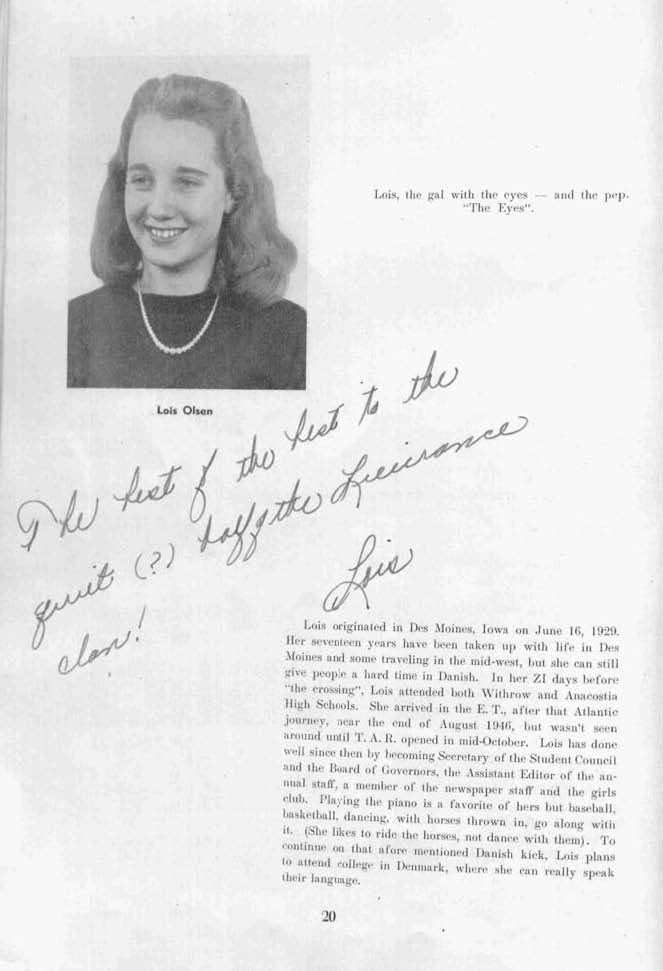 Lois, the gal with the eyes — and the pep.
"The Eyes".
Lois Olsen
The best of the best to the
quiet (?) half of the
clan!
Lois
Lois originated in Des Moines, Iowa on June 16, 1929.
Her seventeen years have been taken up with life in Des
Moines and some traveling in the mid-west, but she can still
give people a hard time in Danish. In her ZI days before
"the crossing", Lois attended both Withrow and Anacostia
High Schools. She arrived in the E. T., after that Atlantic
journey, near the end of August 1946, but wasn't seen
around until T. A. R. opened in mid-October. Lois has done
well since then by becoming Secretary of the Student Council
and the Board of Governors, the Assistant Editor of the an-
nual staff, a member of the newspaper staff and the girls
club. Playing the piano is a favorite of hers but baseball,
basketball, dancing, with horses thrown in, go along with
it. (She likes to ride the horses, not dance with them). To
continue on that afore mentioned Danish kick, Lois plans
to attend college in Denmark, where she can really speak
their language.
20